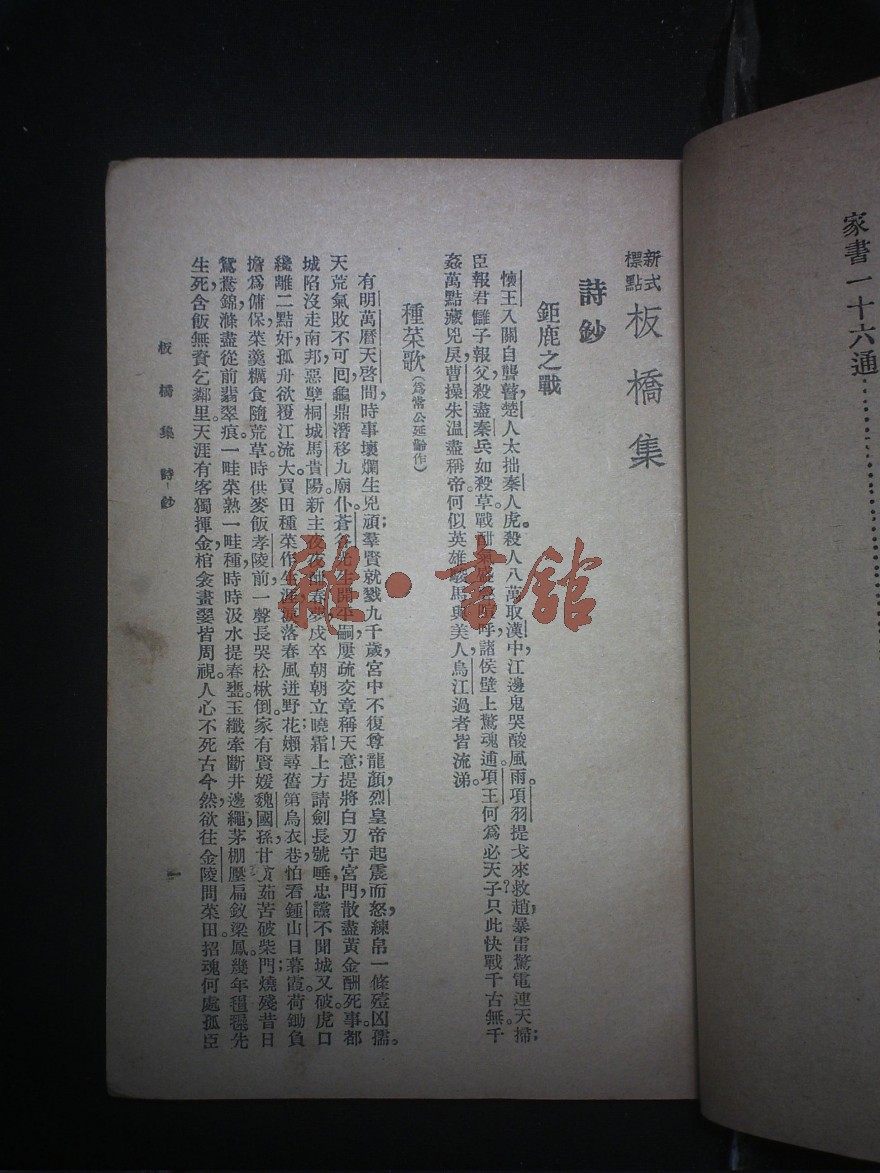 家書一十六通
新式標點 板橋集
詩鈔
鉅鹿之戰
懷王入關自聾瞽，楚人太拙秦人虎。殺人八萬取漢中，江邊鬼哭酸風雨。項羽提戈來救趙，暴雷驚電連天掃；
臣報君讎子報父，殺盡秦兵如殺草。戰酣 呼，諸侯壁上驚魂逋。項王何爲必天子？只此快戰千古無。千
姦萬點藏兇戾，曹操朱溫盡稱帝。何似英雄駿馬與美人，烏江過者皆流涕。
種菜歌（爲常公延齡作）
有明萬曆天啓間，時事壞爛生兇頑；羣賢就戮九千歲，宮中不復尊龍顏，烈皇帝起震而怒，練帛一條殪凶孺。
天荒氣敗不可回，龜鼎潛移九廟仆。蒼谷先生開平嗣，屢疏交章稱天意；提將白刃守宮門，散盡黃金酬死事。都
城陷沒走南邦，惡孽桐城馬貴陽。新主夜夜酣春夢，戍卒朝朝立曉霜。上方請劍長號唾，忠讜不聞城又破。虎口
纔離二點奸，孤舟欲覆江流大。買田種菜作生涯，流落春風迸野花；嬾尋舊第烏衣巷，怕看鍾山日暮霞。荷鋤負
擔爲傭保，菜羹糲食隨荒草。時供麥飯孝陵前，一聲長哭松楸倒。家有賢媛魏國孫，甘貧茹苦破柴門；燒殘昔日
鴛鴦錦，滌盡從前翡翠痕。一畦菜熟一畦種，時時汲水提春甕。玉纖牽斷井邊繩，茅棚壓扁釵梁鳳。幾年 先
生死，含飯無資乞鄰里。天涯有客獨揮金，棺衾畫翣皆周視。人心不死古今然，欲往金陵問菜田。招魂何處孤臣
板橋集 詩鈔
一
雜·書館